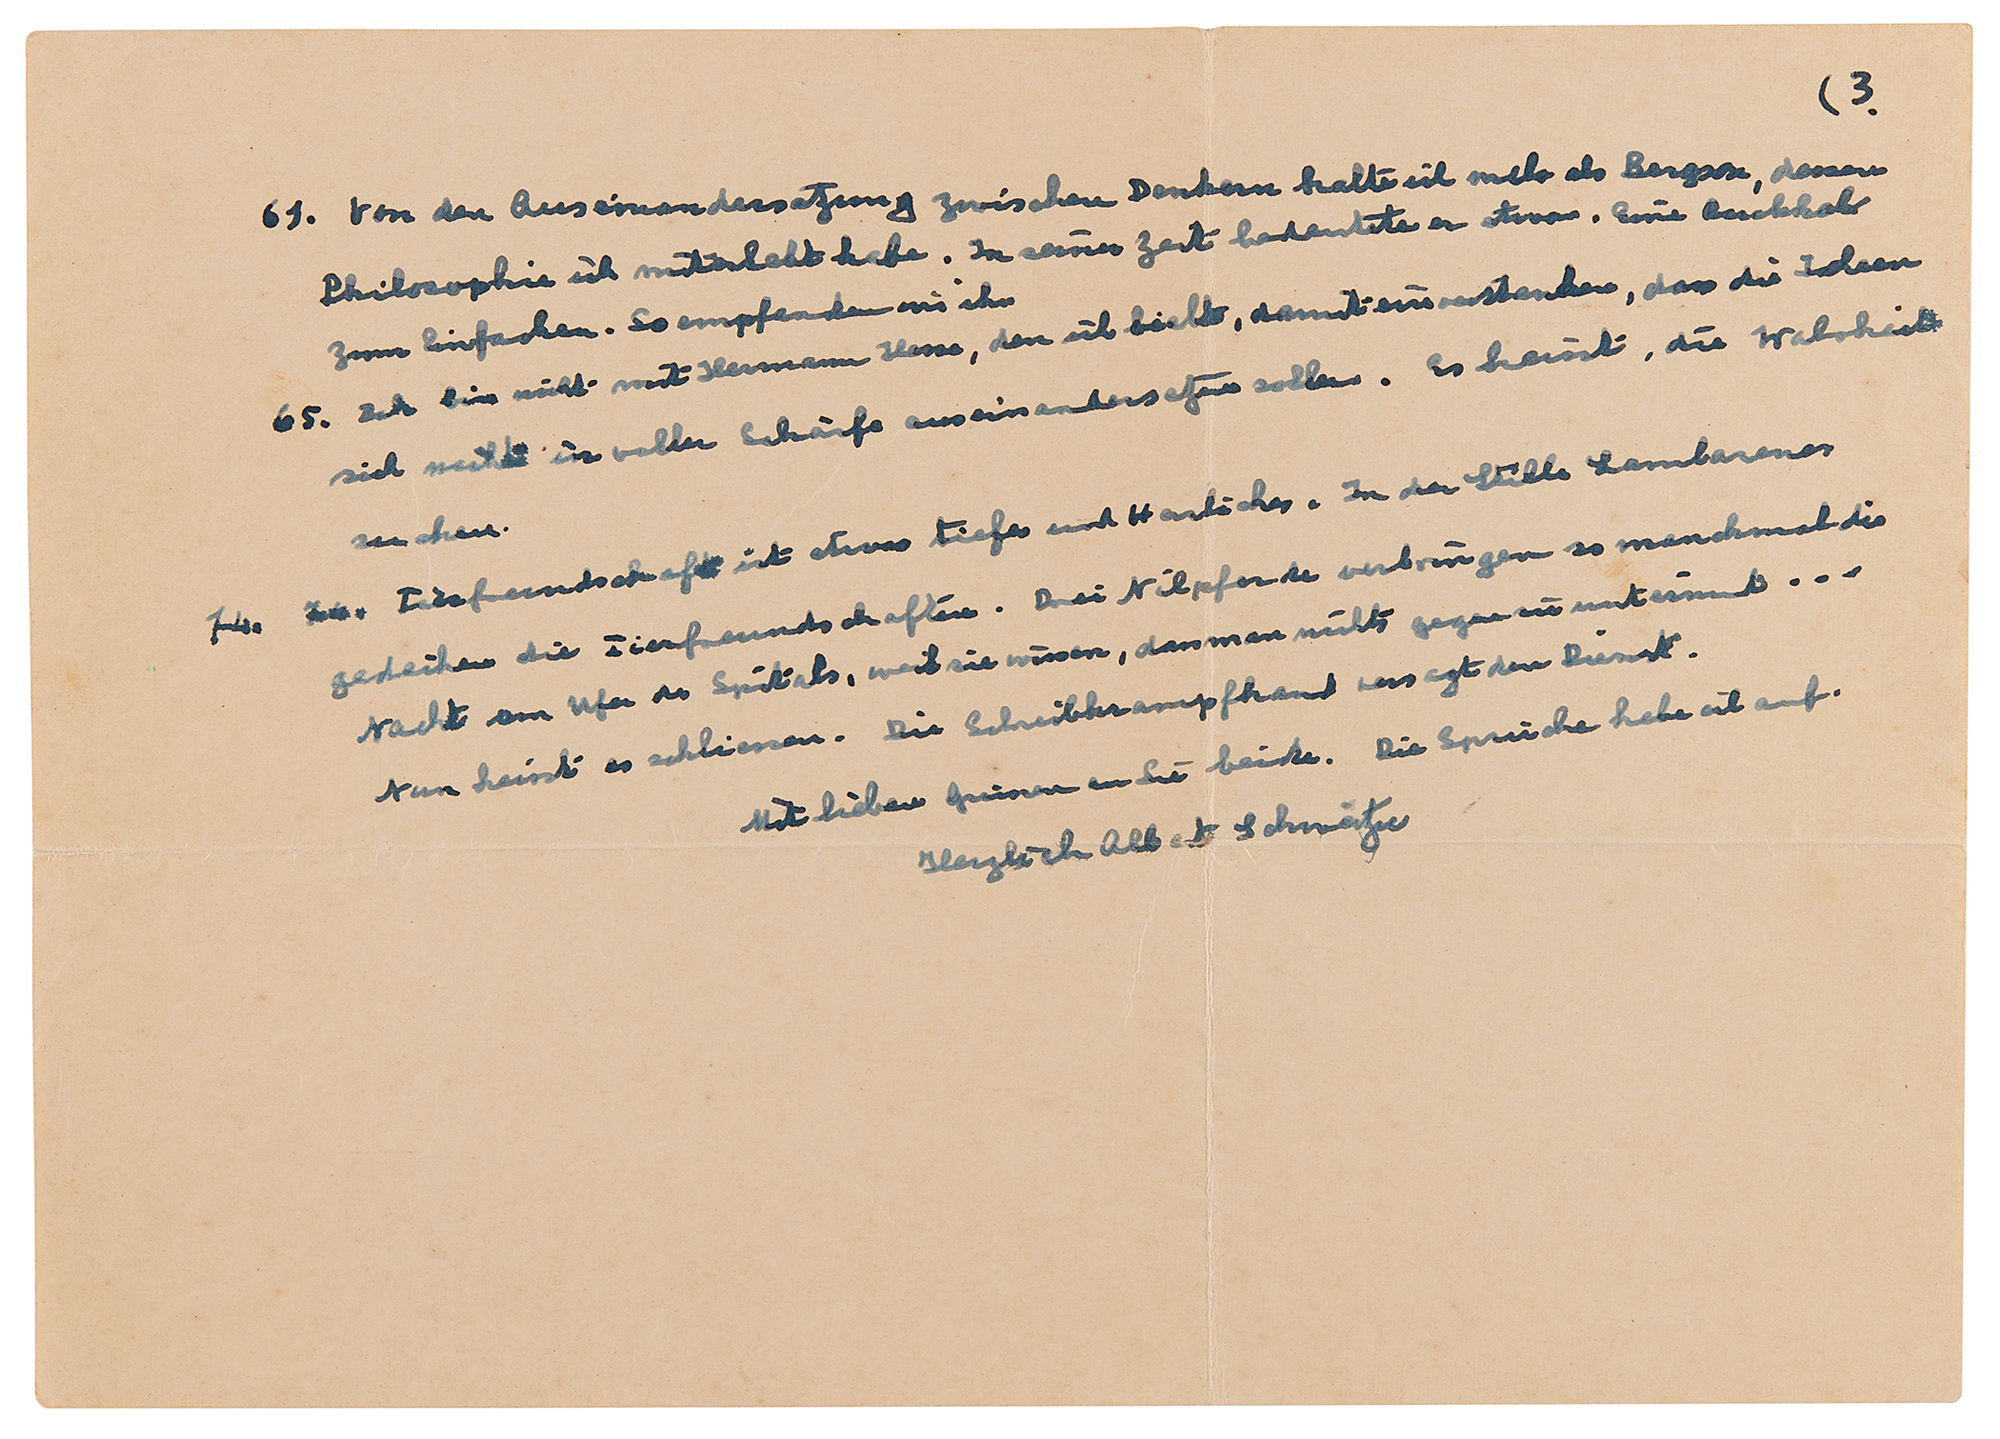 (3.
61. Von der Auseinandersetzung zwischen Denkern halte ich mehr als Bergson, dessen
Philosophie ich miterlebt habe. In seiner Zeit bedeutete er etwas. Eine Rückkehr
zum Einfachen. So empfanden wir ihn
65. Ich bin nicht mit Hermann Hesse, den ich liebte, damit einverstanden, dass die Ideen
sich nicht in voller Schärfe auseinandersetzen sollen. Es heisst, die Wahrheit
suchen.
74. Tierfreundschaft ist etwas Tiefes und Herrliches. In der Stille Lambarenes
gedeihen die Tierfreundschaften. Drei Nilpferde verbringen so manchmal die
Nacht am Ufer des Spitals, weil sie wissen, dass man nichts gegen sie unternimmt ...
Nun heisst es schliessen. Die Schreibkrampfhand versagt den Dienst.
Mit lieben Grüssen an Sie beide. Die Sprüche hebe ich auf.
Herzlich Albert Schweitzer